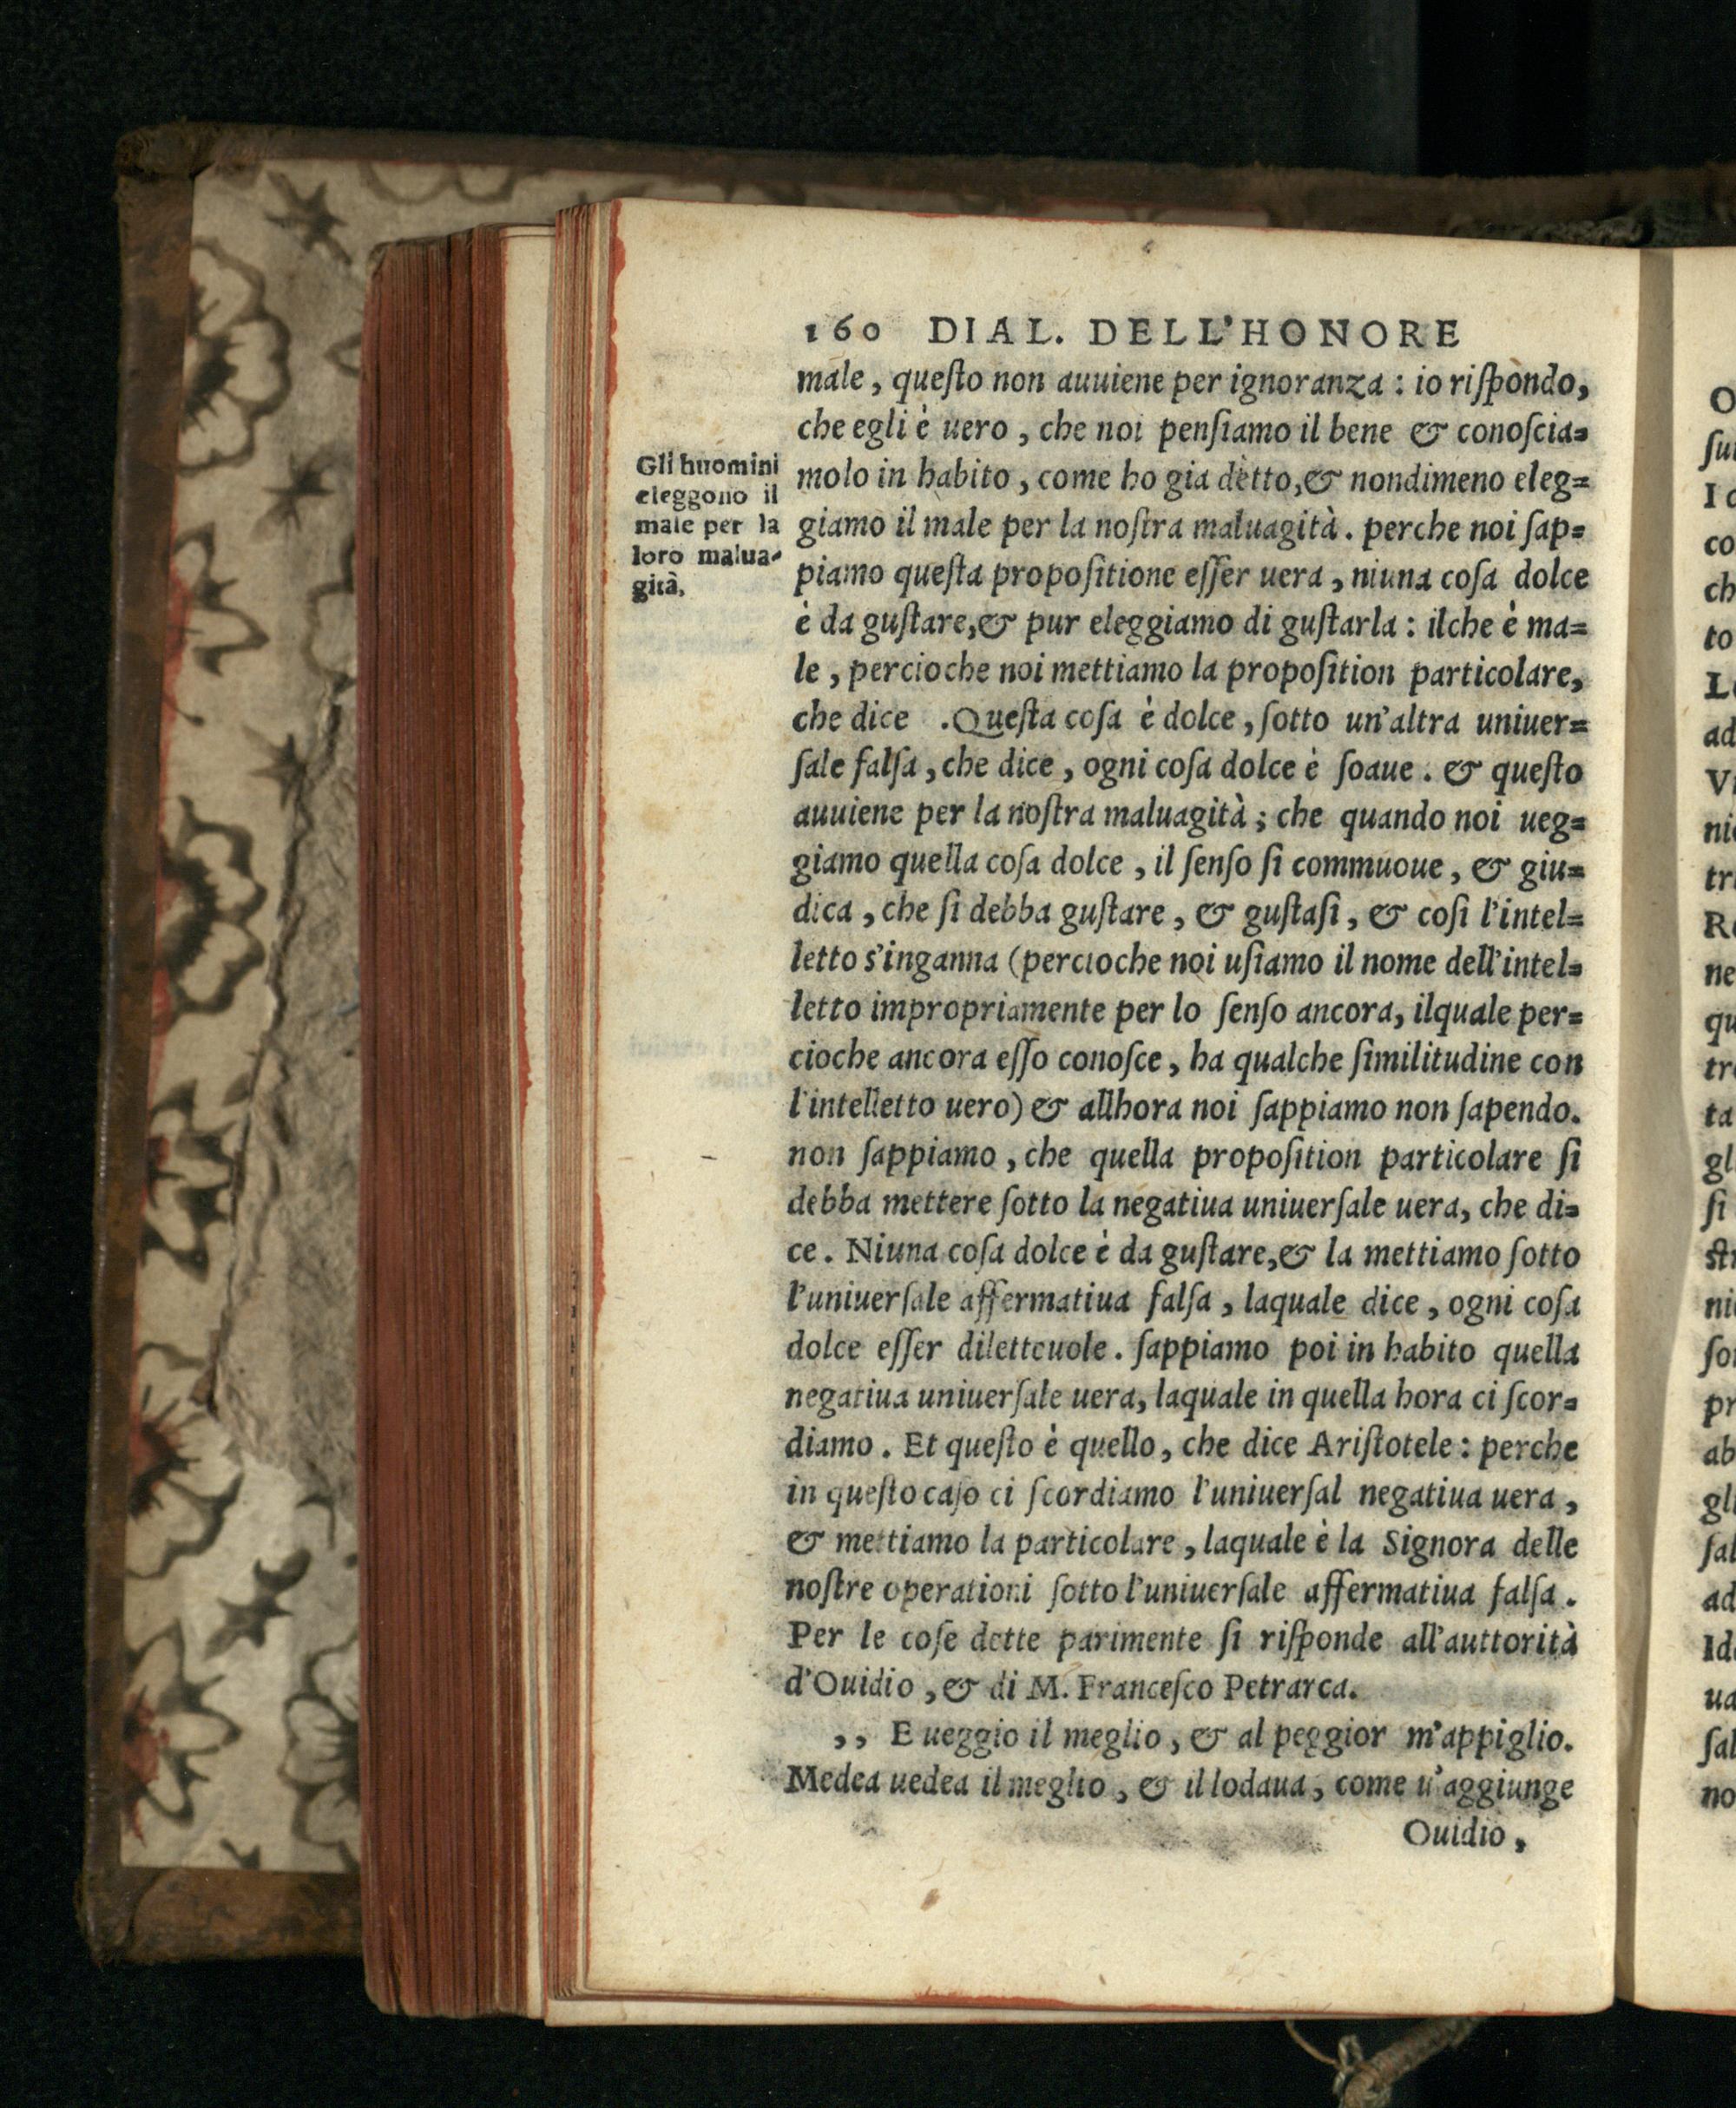 160 DIAL. DELL'HONORE
male, queſto non auuiene per ignoranza: io riſpondo,
che egli è uero, che noi penſiamo il bene & conoſcia=
molo in habito, come ho gia detto, & nondimeno eleg=
giamo il male per la noſtra maluagità. perche noi ſap=
piamo queſta propoſitione eſſer uera, niuna coſa dolce
è da guſtare, & pur eleggiamo di guſtarla: ilche è ma=
le, percioche noi mettiamo la propoſition particolare,
che dice .Queſta coſa è dolce, ſotto un'altra uniuer=
ſale falſa, che dice, ogni coſa dolce è ſoaue. & queſto
auuiene per la noſtra maluagità; che quando noi ueg=
giamo quella coſa dolce, il ſenſo ſi commuoue, & giu=
dica, che ſi debba guſtare, & guſtaſi, & coſi l'intel=
letto s'inganna (percioche noi uſiamo il nome dell'intel=
letto impropriamente per lo ſenſo ancora, ilquale per=
cioche ancora eſſo conoſce, ha qualche ſimilitudine con
l'intelletto uero) & allhora noi ſappiamo non ſapendo.
non ſappiamo, che quella propoſition particolare ſi
debba mettere ſotto la negatiua uniuerſale uera, che di=
ce. Niuna coſa dolce è da guſtare, & la mettiamo ſotto
l'uniuerſale affermatiua falſa, laquale dice, ogni coſa
dolce eſſer diletteuole. ſappiamo poi in habito quella
negatiua uniuerſale uera, laquale in quella hora ci ſcor=
diamo. Et queſto è quello, che dice Ariſtotele: perche
in queſto caſo ci ſcordiamo l'uniuerſal negatiua uera,
& mettiamo la particolare, laquale è la Signora delle
noſtre operationi ſotto l'uniuerſale affermatiua falſa.
Per le coſe dette parimente ſi riſponde all'auttorità
d'Ouidio, & di M. Franceſco Petrarca.
,, E ueggio il meglio, & al peggior m'appiglio.
Medea uedea il meglio, & il lodaua, come u'aggiunge
Ouidio,
Gli huomini
eleggono il
male per la
loro malua=
gità.